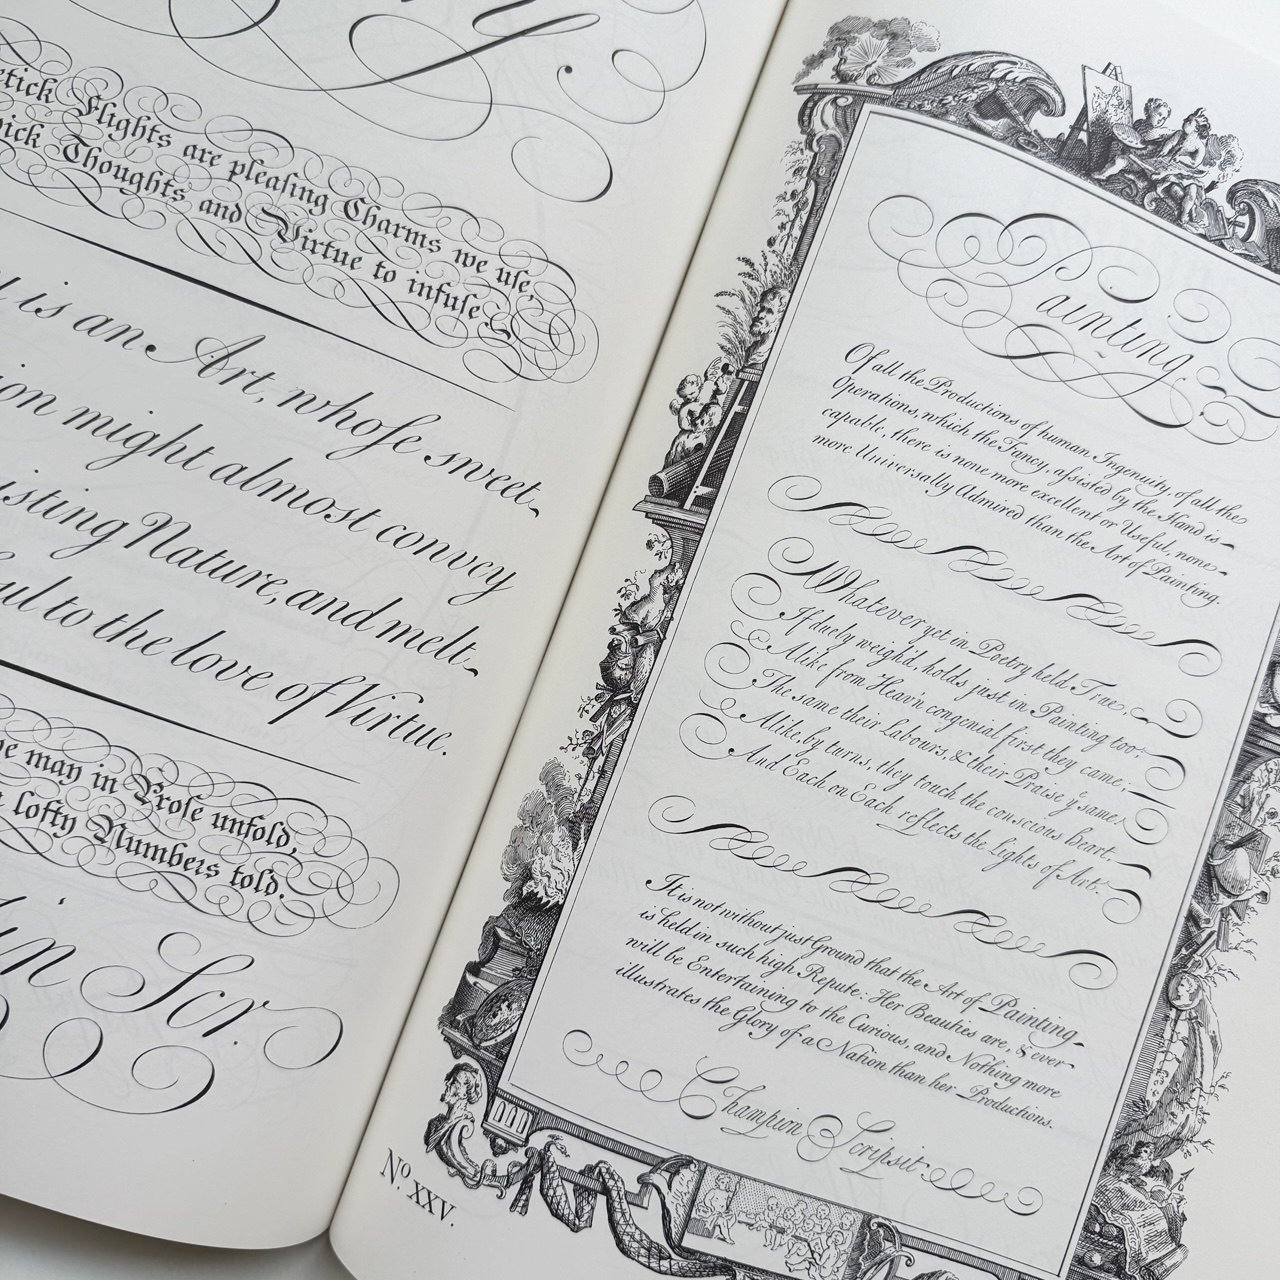 Flights are pleaſing Charms we use,
Thoughts and Virtue to infuſe
is an Art, whoſe sweet
might almost convey
Nature, and melt
to the love of Virtue.
may in Proſe unfold,
lofty Numbers told.
Scr.
Painting
Of all the Productions of human Ingenuity, of all the
Operations, which the Fancy, aſsisted by the Hand is
capable, there is none more excellent or Useful, none
more Universally Admired than the Art of Painting.
Whatever yet in Poetry held True,
If duely weigh'd, holds just in Painting too:
Alike from Heav'n congenial first they came,
The same their Labours, & their Praise yͤ same:
Alike, by turns, they touch the conscious Heart,
And Each on Each reflects the Lights of Art.
It is not without just Ground that the Art of Painting
is held in such high Repute: Her Beauties are, & ever
will be Entertaining to the Curious, and Nothing more
illustrates the Glory of a Nation than her Productions.
Champion Scripsit
Nº. XXV.